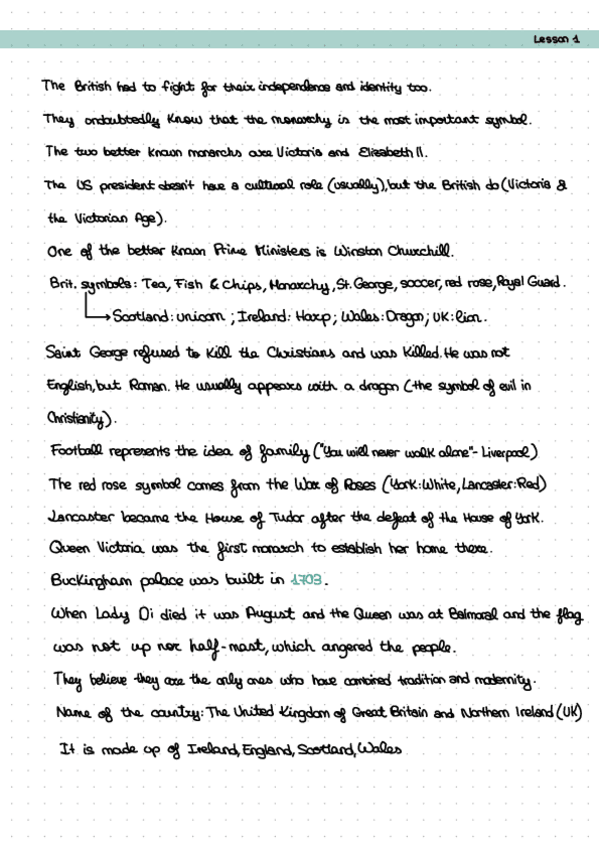 Lesson 1
The British had to fight for their independence and identity too.
They ondoubtedly know that the monarchy is the most important symbol.
The two better known monarchs are Victoria and Elizabeth II.
The US president doesn't have a cultural role (usually), but the British do (Victoria &
the Victorian Age).
One of the better known Prime Ministers is Winston Churchill.
Brit. symbols: Tea, Fish & Chips, Monarchy, St. George, soccer, red rose, Royal Guard.
Scotland: unicorn ; Ireland: Harp ; Wales: Dragon ; UK: lion.
Saint George refused to kill the Christians and was killed. He was not
English, but Roman. He usually appears with a dragon (the symbol of evil in
Christianity).
Football represents the idea of family ("You will never walk alone"- Liverpool)
The red rose symbol comes from the War of Roses (York: White, Lancaster: Red)
Lancaster became the House of Tudor after the defeat of the House of York.
Queen Victoria was the first monarch to establish her home there.
Buckingham palace was built in 1703.
When Lady Di died it was August and the Queen was at Balmoral and the flag
was not up nor half-mast, which angered the people.
They believe they are the only ones who have combined tradition and modernity.
Name of the country: The United Kingdom of Great Britain and Northern Ireland (UK)
It is made up of Ireland, England, Scotland, Wales